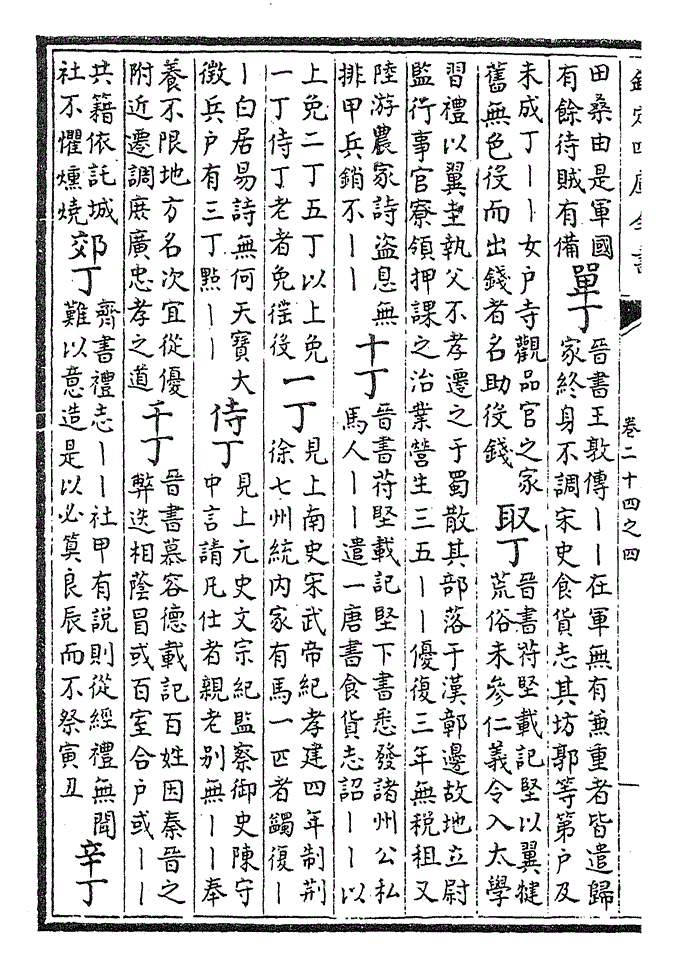 欽定四庫全書
卷二十四之四
田桑由是軍國
有餘待賊有備
單丁
晉書王敦傳丨丨在軍無有兼重者皆遣歸
家終身不調宋史食貨志其坊郭等第户及
未成丁丨丨女户寺觀品官之家
舊無色役而出錢者名助役錢
取丁
晉書苻堅載記堅以翼犍
荒俗未參仁義令入太學
習禮以翼圭執父不孝遷之于蜀散其部落于漢鄣邊故地立尉
監行事官寮領押課之治業營生三五丨丨優復三年無税租又
陸游農家詩盜息無
排甲兵銷不丨丨
十丁
晉書苻堅載記堅下書悉發諸州公私
馬人丨丨遣一唐書食貨志詔丨丨以
上免二丁五丁以上免
一丁侍丁老者免徭役
一丁
見上南史宋武帝紀孝建四年制荆
徐七州統内家有馬一匹者蠲復丨
丨白居易詩無何天寶大
徵兵户有三丁點丨丨
侍丁
見上元史文宗紀監察御史陳守
中言請凡仕者親老别無丨丨奉
養不限地方名次宜從優
附近遷調庶廣忠孝之道
千丁
晉書慕容德載記百姓因秦晉之
弊迭相蔭冒或百室合户或丨丨
共籍依託城
社不懼燻燒
郊丁
齊書禮志丨丨社甲有説則從經禮無聞
難以意造是以必算良辰而不祭寅丑
辛丁